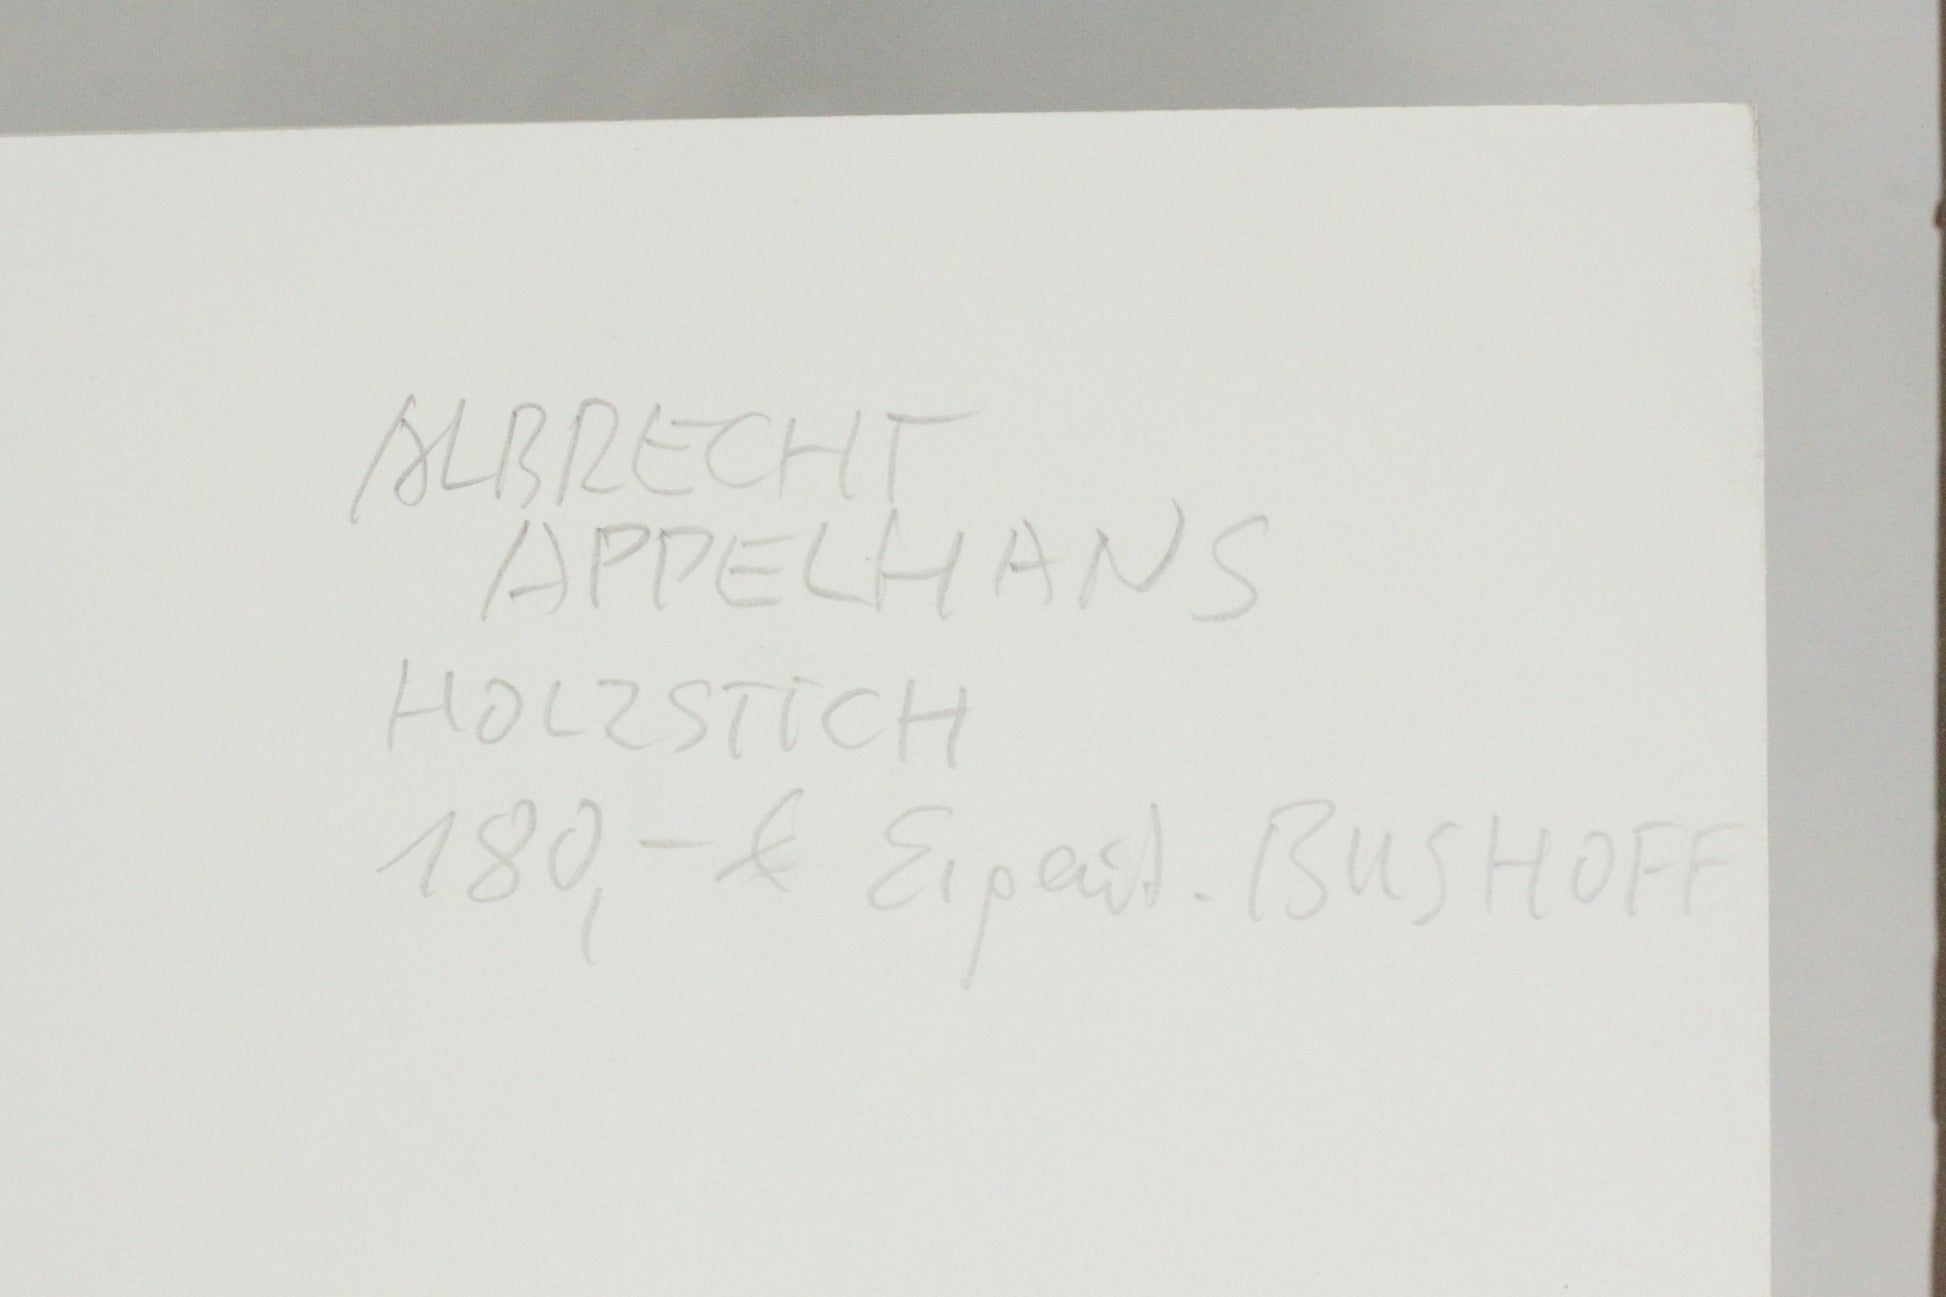 ALBRECHT
APPELHANS
HOLZSTICH
180,- € BUSHOFF